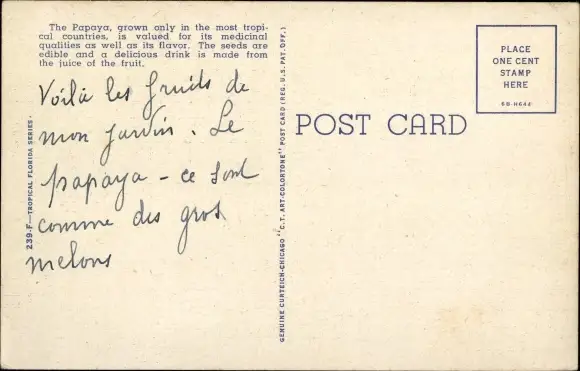 The Papaya, grown only in the most tropi-
cal countries, is valued for its medicinal
qualities as well as its flavor. The seeds are
edible and a delicious drink is made from
the juice of the fruit.
Voilà les fruits de
mon jardin. Le
papaya - ce sont
comme des gros
melons
239-F—TROPICAL FLORIDA SERIES.
GENUINE CURTEICH-CHICAGO "C.T. ART-COLORTONE" POST CARD (REG. U.S. PAT. OFF.)
POST CARD
PLACE
ONE CENT
STAMP
HERE
6B-H644